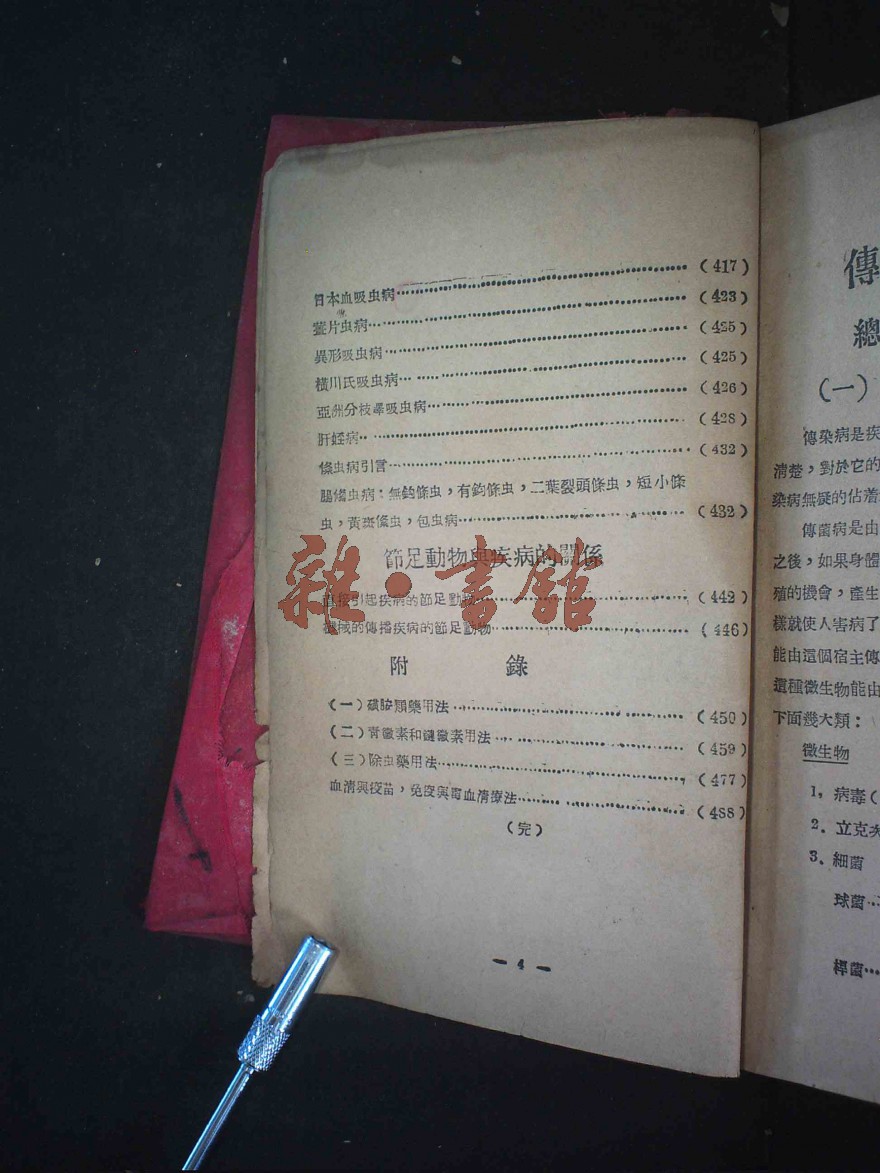 日本血吸虫病……(417)
薑片虫病……(423)
異形吸虫病……(425)
橫川氏吸虫病……(425)
亞洲分枝睾吸虫病……(426)
肝蛭病……(428)
絛虫病引言……(432)
腸絛虫病:無鈎絛虫,有鈎絛虫,二葉裂頭絛虫,短小絛
虫,黃斑絛虫,包虫病……(432)
節足動物與疾病的關係
直接引起疾病的節足動物……(442)
機械的傳播疾病的節足動物……(446)
附 錄
(一)磺胺類藥用法……(450)
(二)青黴素和鏈黴素用法……(459)
(三)除虫藥用法……(477)
血清與疫苗,免疫與血清療法……(488)
(完)
— 4 —
雜·書館
傳
總
(一)
傳染病是疾
清楚,對於它的
染病無疑的佔着
傳菌病是由
之後,如果身體
殖的機會,產生
樣就使人害病了
能由這個宿主傳
這種微生物能由
下面幾大類:
微生物
1,病毒(
2.立克次
3.細菌
球菌…
桿菌…